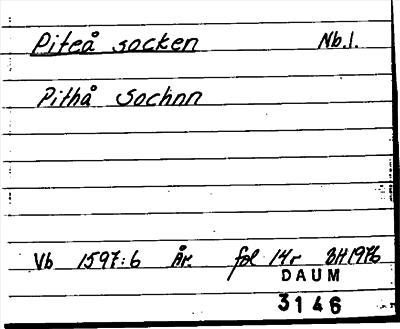 Piteå socken Nb.l.
Pithå Sochnn
Vb 1597:6 År. fol 14r BH1976
DAUM
3146